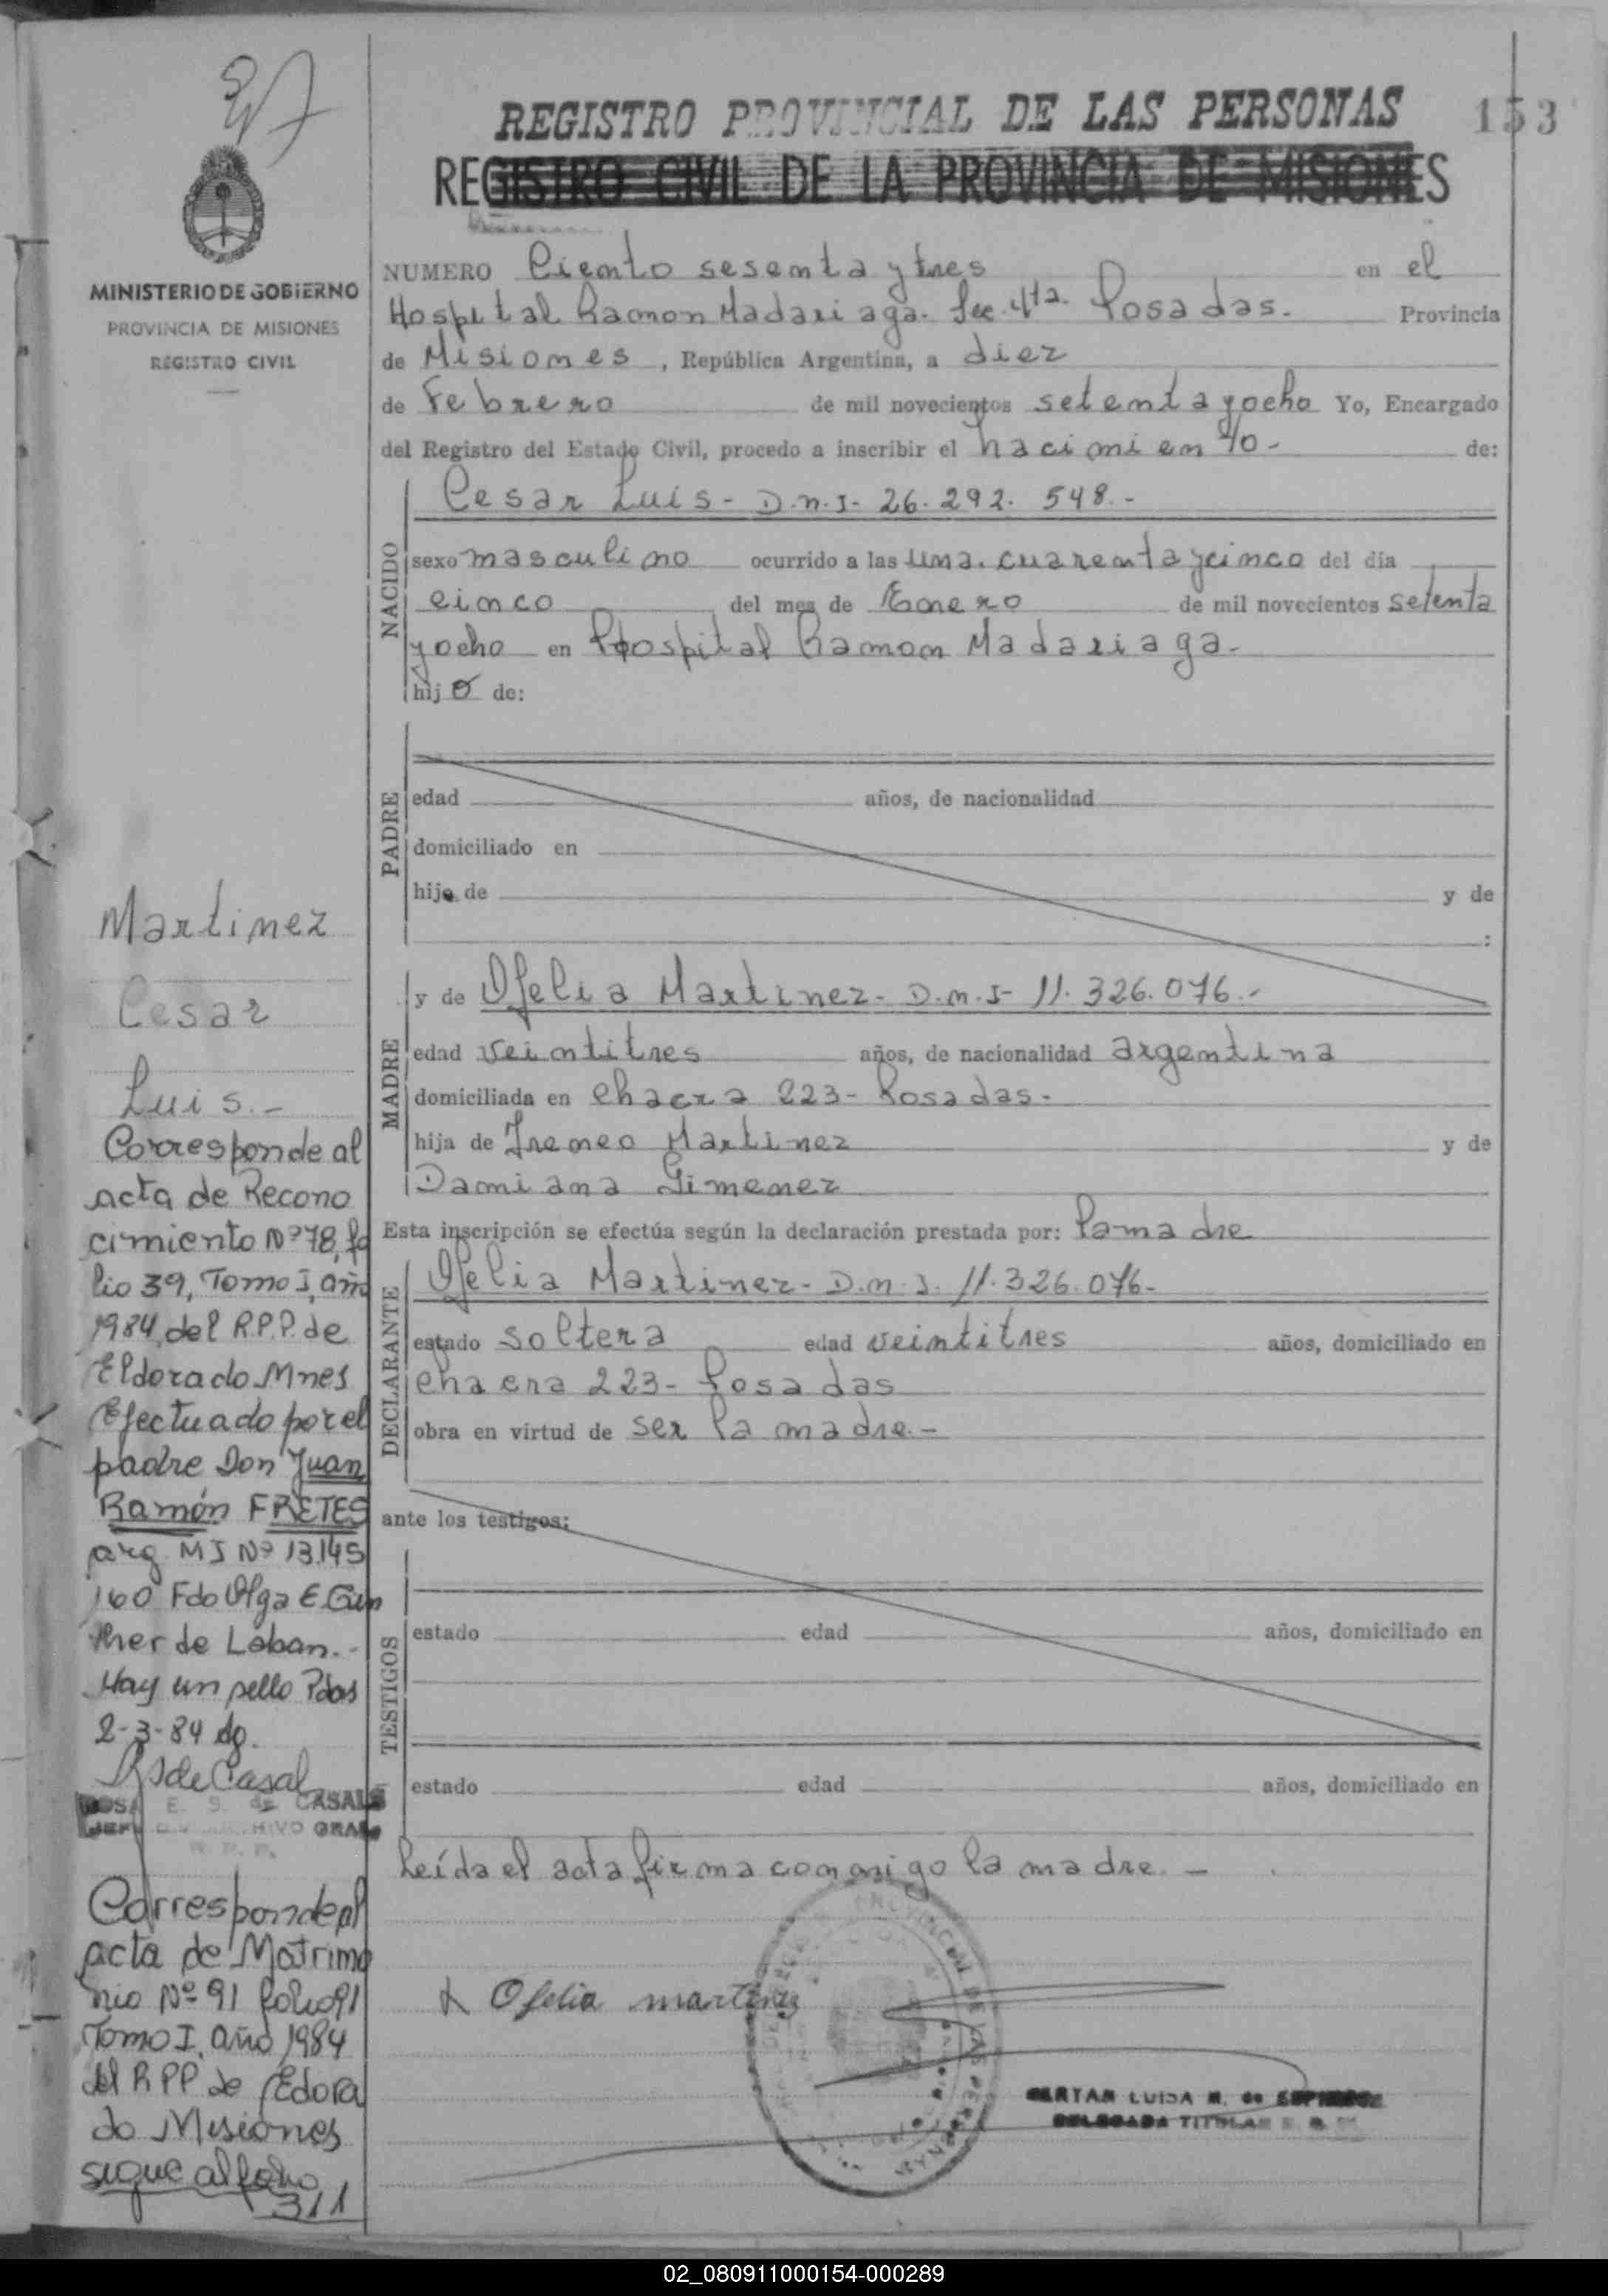 REGISTRO PROVINCIAL DE LAS PERSONAS
153
REGISTRO CIVIL DE LA PROVINCIA DE MISIONES
MINISTERIO DE GOBIERNO
PROVINCIA DE MISIONES
REGISTRO CIVIL
NUMERO Ciento sesenta y tres en el
Hospital Ramon Madariaga. Sec. 4ta. Posadas. Provincia
de Misiones, República Argentina, a diez
de Febrero de mil novecientos setenta y ocho Yo, Encargado
del Registro del Estado Civil, procedo a inscribir el nacimiento - de:
NACIDO
Cesar Luis - D.n.I - 26.292.548.-
sexo masculino ocurrido a las una. cuarenta y cinco del día
cinco del mes de Enero de mil novecientos setenta
y ocho en Hospital Ramon Madariaga.
hijo de:
PADRE
edad años, de nacionalidad
domiciliado en
hijo de y de
:
MADRE
y de Ofelia Martinez - D.n.I - 11.326.076.-
edad veintitres años, de nacionalidad argentina
domiciliada en chacra 223 - Posadas.
hija de Ireneo Martinez y de
Damiana Gimenez
Esta inscripción se efectúa según la declaración prestada por: la madre
DECLARANTE
Ofelia Martinez - D.n.I. 11.326.076-
estado soltera edad veintitres años, domiciliado en
chacra 223 - Posadas
obra en virtud de ser la madre.-
ante los testigos:
TESTIGOS
estado edad años, domiciliado en
estado edad años, domiciliado en
Leída el acta firma conmigo la madre. -
Ofelia martinez
LUISA M. de
DELEGADA TITULAR
Martinez
Cesar
Luis.-
Corresponde al
acta de Recono
cimiento Nº 78, fo
lio 39, Tomo I, año
1984, del R.P.P. de
Eldorado Mnes
Efectuado por el
padre Don Juan
Ramón FRETES
arg. MI Nº 13.145
160 Fdo Olga E. Gun
ther de Loban.-
Hay un sello Pdas
2-3-84 dg.
RS de Casal
ROSA E. S. de CASALS
JEFE DIV. ARCHIVO GRAL.
R. P. P.
Corresponde al
acta de Matrimo
nio Nº 91 folio 91
Tomo I, año 1984
del RPP de Edora
do Misiones
sigue al folio
311
02_080911000154-000289